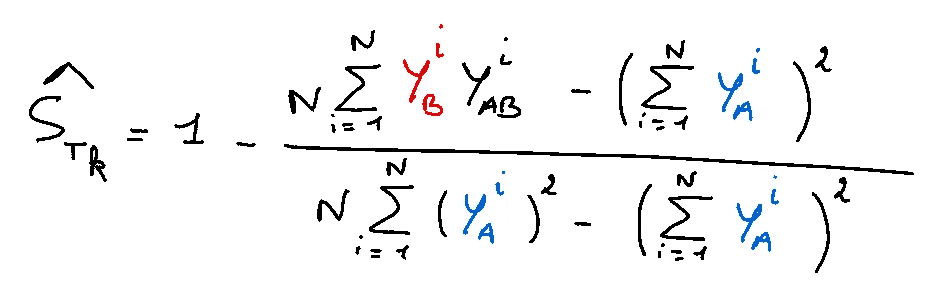 $\widehat{S_{T_k}} = 1 - \frac{N \sum_{i=1}^{N} Y_B^i Y_{AB}^i - \left( \sum_{i=1}^{N} Y_A^i \right)^2}{N \sum_{i=1}^{N} (Y_A^i)^2 - \left( \sum_{i=1}^{N} Y_A^i \right)^2}$